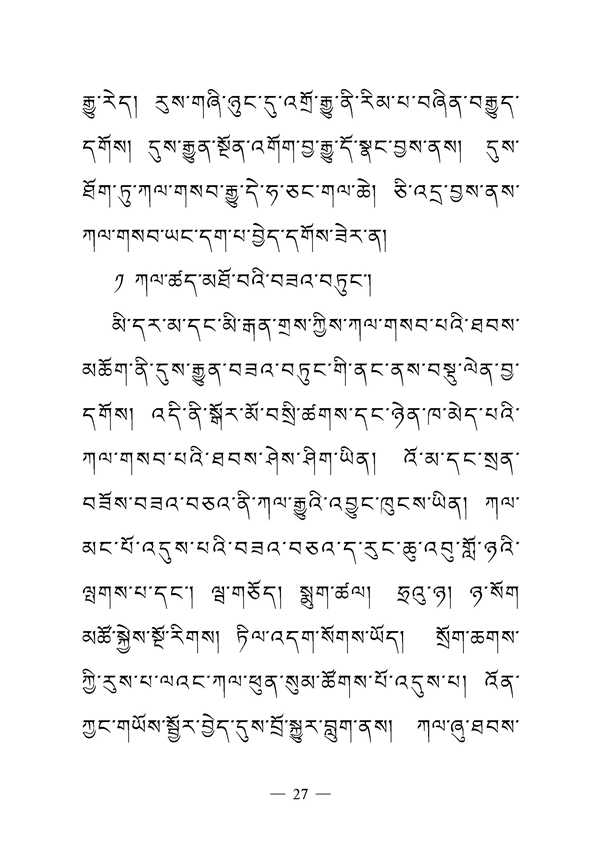 རྒྱུ་རེད། རུས་གཞི་ཉུང་དུ་འགྲོ་རྒྱུ་ནི་རིམ་པ་བཞིན་བརྒྱུད་
དགོས། དུས་རྒྱུན་སྔོན་འགོག་བྱ་རྒྱུ་དོ་སྣང་བྱས་ནས། དུས་
ཐོག་ཏུ་ཀལ་གསབ་རྒྱུ་དེ་ཧ་ཅང་གལ་ཆེ། ཅི་འདྲ་བྱས་ནས་
ཀལ་གསབ་ཡང་དག་པ་བྱེད་དགོས་ཟེར་ན།
༡ ཀལ་ཚད་མཐོ་བའི་བཟའ་བཏུང་།
མི་དར་མ་དང་མི་རྒན་གྲས་ཀྱིས་ཀལ་གསབ་པའི་ཐབས་
མཆོག་ནི་དུས་རྒྱུན་བཟའ་བཏུང་གི་ནང་ནས་བསྡུ་ལེན་བྱ་
དགོས། འདི་ནི་སྒོར་མོ་བསྲི་ཚགས་དང་ཉེན་ཁ་མེད་པའི་
ཀལ་གསབ་པའི་ཐབས་ཤེས་ཤིག་ཡིན། འོ་མ་དང་སྲན་
བཟོས་བཟའ་བཅའ་ནི་ཀལ་རྒྱུའི་འབྱུང་ཁུངས་ཡིན། ཀལ་
མང་པོ་འདུས་པའི་བཟའ་བཅའ་ད་རུང་ཆུ་འབུ་གློ་ཉའི་
ལྤགས་པ་དང་། ལྦ་གཅོད། སྨུག་ཚལ། ཧྲའུ་ཉ། ཉ་སོག
མཚོ་སྐྱེས་སྔོ་རིགས། ཏིལ་འདག་སོགས་ཡོད། སྲོག་ཆགས་
ཀྱི་རུས་པ་ལའང་ཀལ་ཕུན་སུམ་ཚོགས་པོ་འདུས་པ། འོན་
ཀྱང་གཡོས་སྦྱོར་བྱེད་དུས་བྲོ་སྐྱུར་བླུག་ནས། ཀལ་ཞུ་ཐབས་
— 27 —